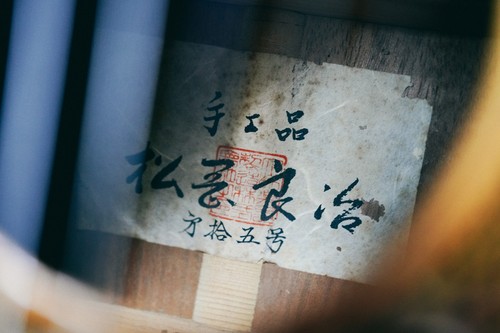 手工品
松㐂良治
方拾五号